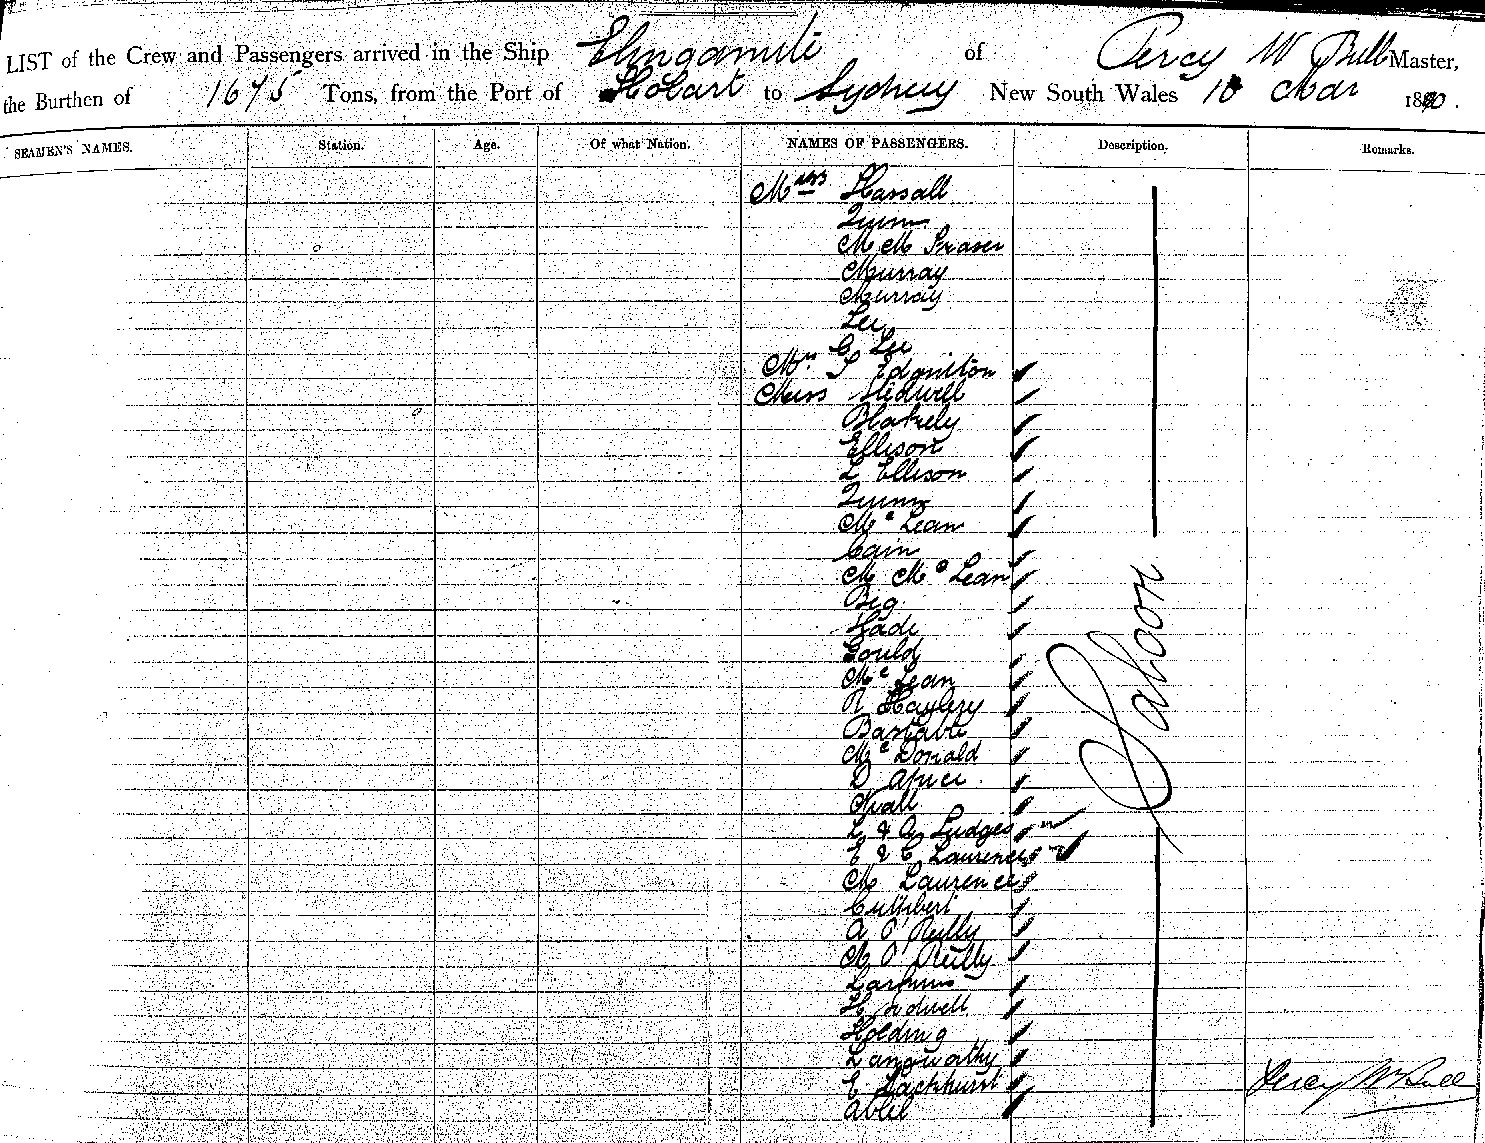 LIST of the Crew and Passengers arrived in the Ship Elingamite of Percy W Bull Master,
the Burthen of 1675 Tons, from the Port of Hobart to Sydney New South Wales 18 Mar 1890.
SEAMEN'S NAMES. Station. Age. Of what Nation. NAMES OF PASSENGERS. Description. Remarks.
Hassall
Quinn
M M Fraser
Murray
Murray
Lee
C Lee
Mrs S Edmiston
Miss Stidwell
Blakely
Ellison
L Ellison
Quinn
Mc Lean
Cain
M Mc Lean
Beg
Gould
Mc Lean
Bastable
Mc Donald
L & A Ludges
E & C Laurence
M Laurence
Saloon
Cuthbert
A O'Reilly
M O'Reilly
Larkins
Holding
Langworthy
E Packhurst
Percy W Bull